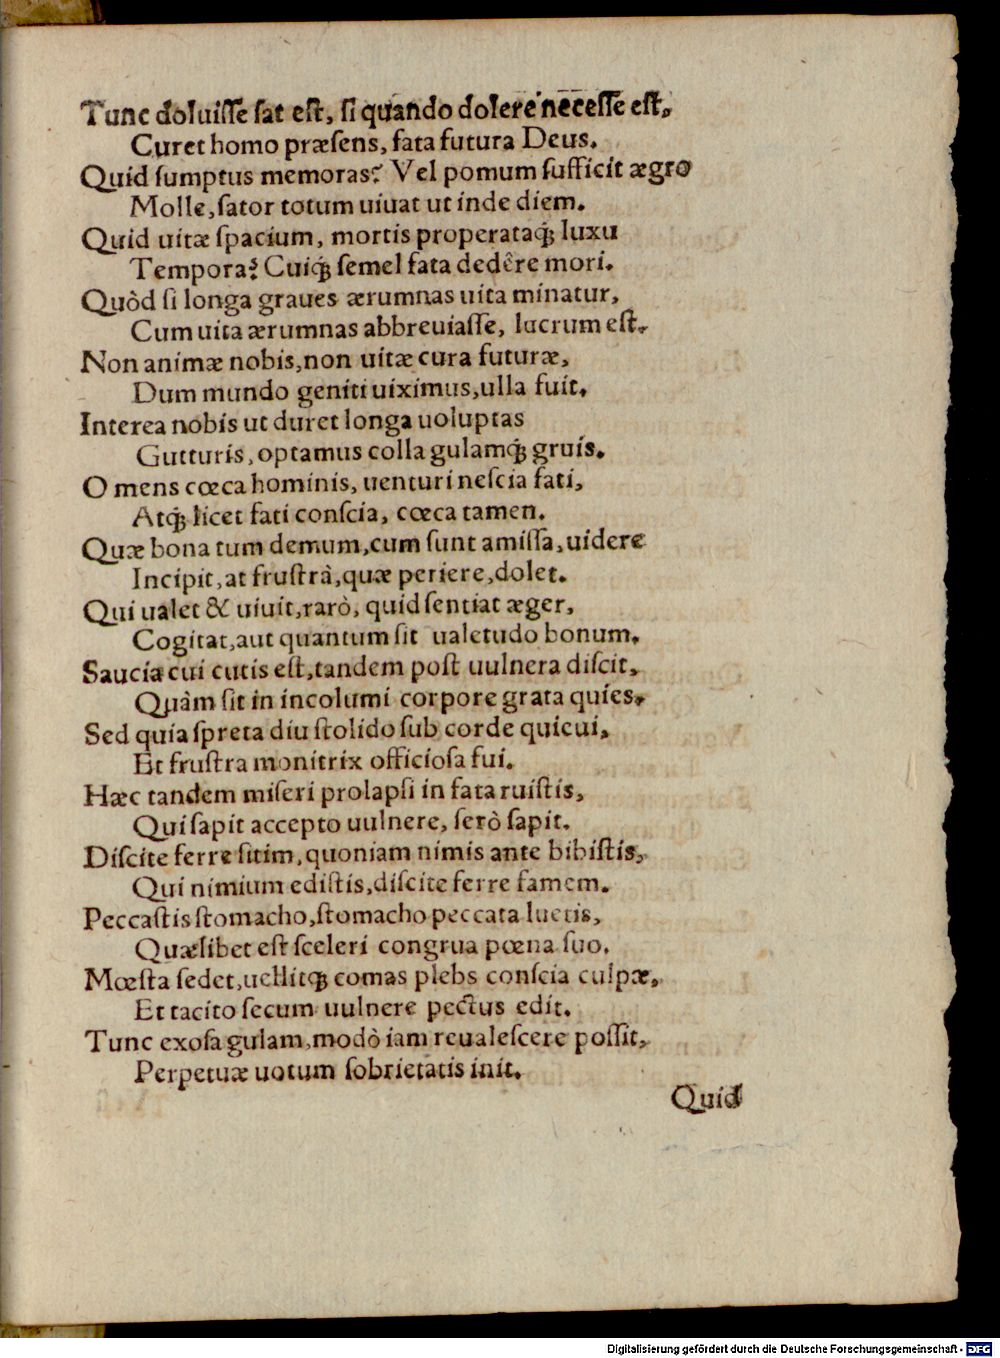 Tunc doluiſſe ſat eſt, ſi quando dolere neceſſe eſt,
Curet homo præſens, fata futura Deus.
Quid ſumptus memoras? Vel pomum ſufficit ægro
Molle, ſator totum uiuat ut inde diem.
Quid uitæ ſpacium, mortis properataq́; luxu
Tempora? Cuiq́; ſemel fata dedêre mori.
Quòd ſi longa graues ærumnas uita minatur,
Cum uita ærumnas abbreuiaſſe, lucrum eſt.
Non animæ nobis, non uitæ cura futuræ,
Dum mundo geniti uiximus, ulla fuit.
Interea nobis ut duret longa uoluptas
Gutturis, optamus colla gulamq́; gruis.
O mens cœca hominis, uenturi neſcia fati,
Atq́; licet fati conſcia, cœca tamen.
Quæ bona tum demum, cum ſunt amiſſa, uidere
Incipit, at fruſtrà, quæ periere, dolet.
Qui ualet & uiuit, rarò, quid ſentiat æger,
Cogitat, aut quantum ſit ualetudo bonum.
Saucia cui cutis eſt, tandem poſt uulnera diſcit,
Quàm ſit in incolumi corpore grata quies.
Sed quia ſpreta diu ſtolido ſub corde quieui,
Et fruſtra monitrix officioſa fui.
Hæc tandem miſeri prolapſi in fata ruiſtis,
Qui ſapit accepto uulnere, ſerò ſapit.
Diſcite ferre ſitim, quoniam nimis ante bibiſtis,
Qui nimium ediſtis, diſcite ferre famem.
Peccaſtis ſtomacho, ſtomacho peccata luetis,
Quælibet eſt ſceleri congrua pœna ſuo.
Mœſta ſedet, uellitq́; comas plebs conſcia culpæ,
Et tacito ſecum uulnere pectus edit.
Tunc exoſa gulam, modò iam reualeſcere poſſit,
Perpetuæ uotum ſobrietatis init.
Quid
Digitalisierung gefördert durch die Deutsche Forschungsgemeinschaft - DFG